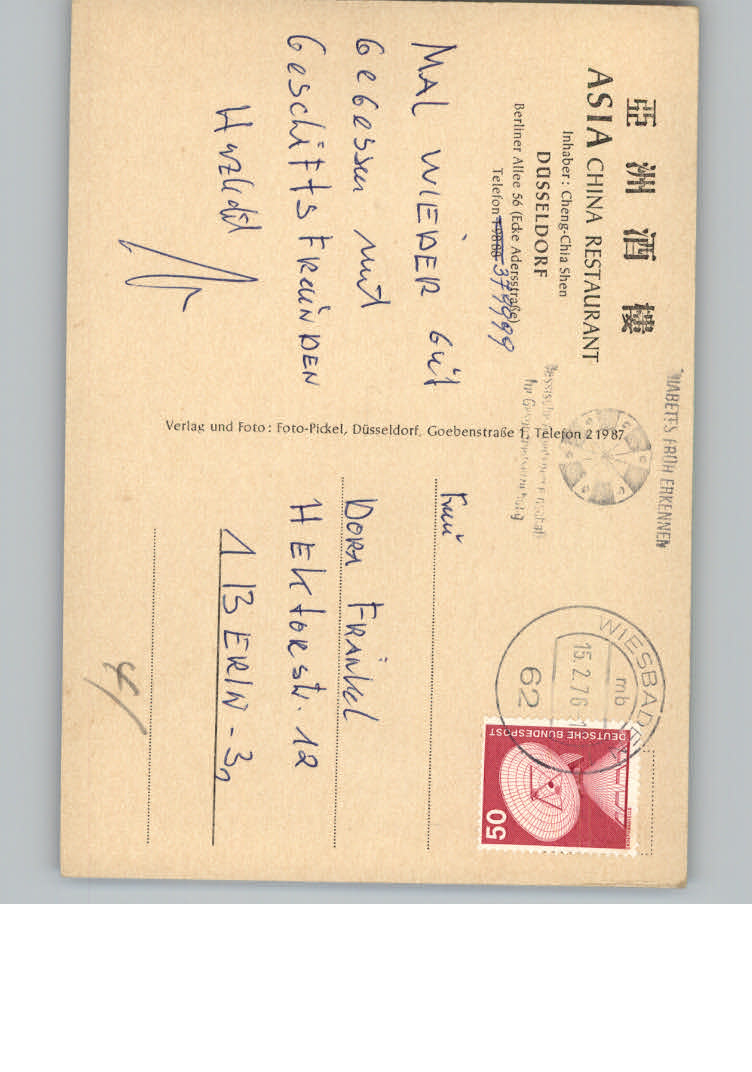 亞洲酒樓
ASIA CHINA RESTAURANT
Inhaber: Cheng-Chia Shen
DÜSSELDORF
Berliner Allee 56 (Ecke Adersstraße)
Telefon 379999
MAL WIEDER GUT
GEGESSEN MIT
GESCHÄFTSFREUNDEN
Herzlichst
Verlag und Foto: Foto-Pickel, Düsseldorf, Goebenstraße 1, Telefon 21987
DIABETES FRÜH ERKENNEN
WIESBADEN
mb
15.2.76
62
DEUTSCHE BUNDESPOST
50
Frau
DORA FRÄNKEL
HEKTORSTR. 12
1 BERLIN-31